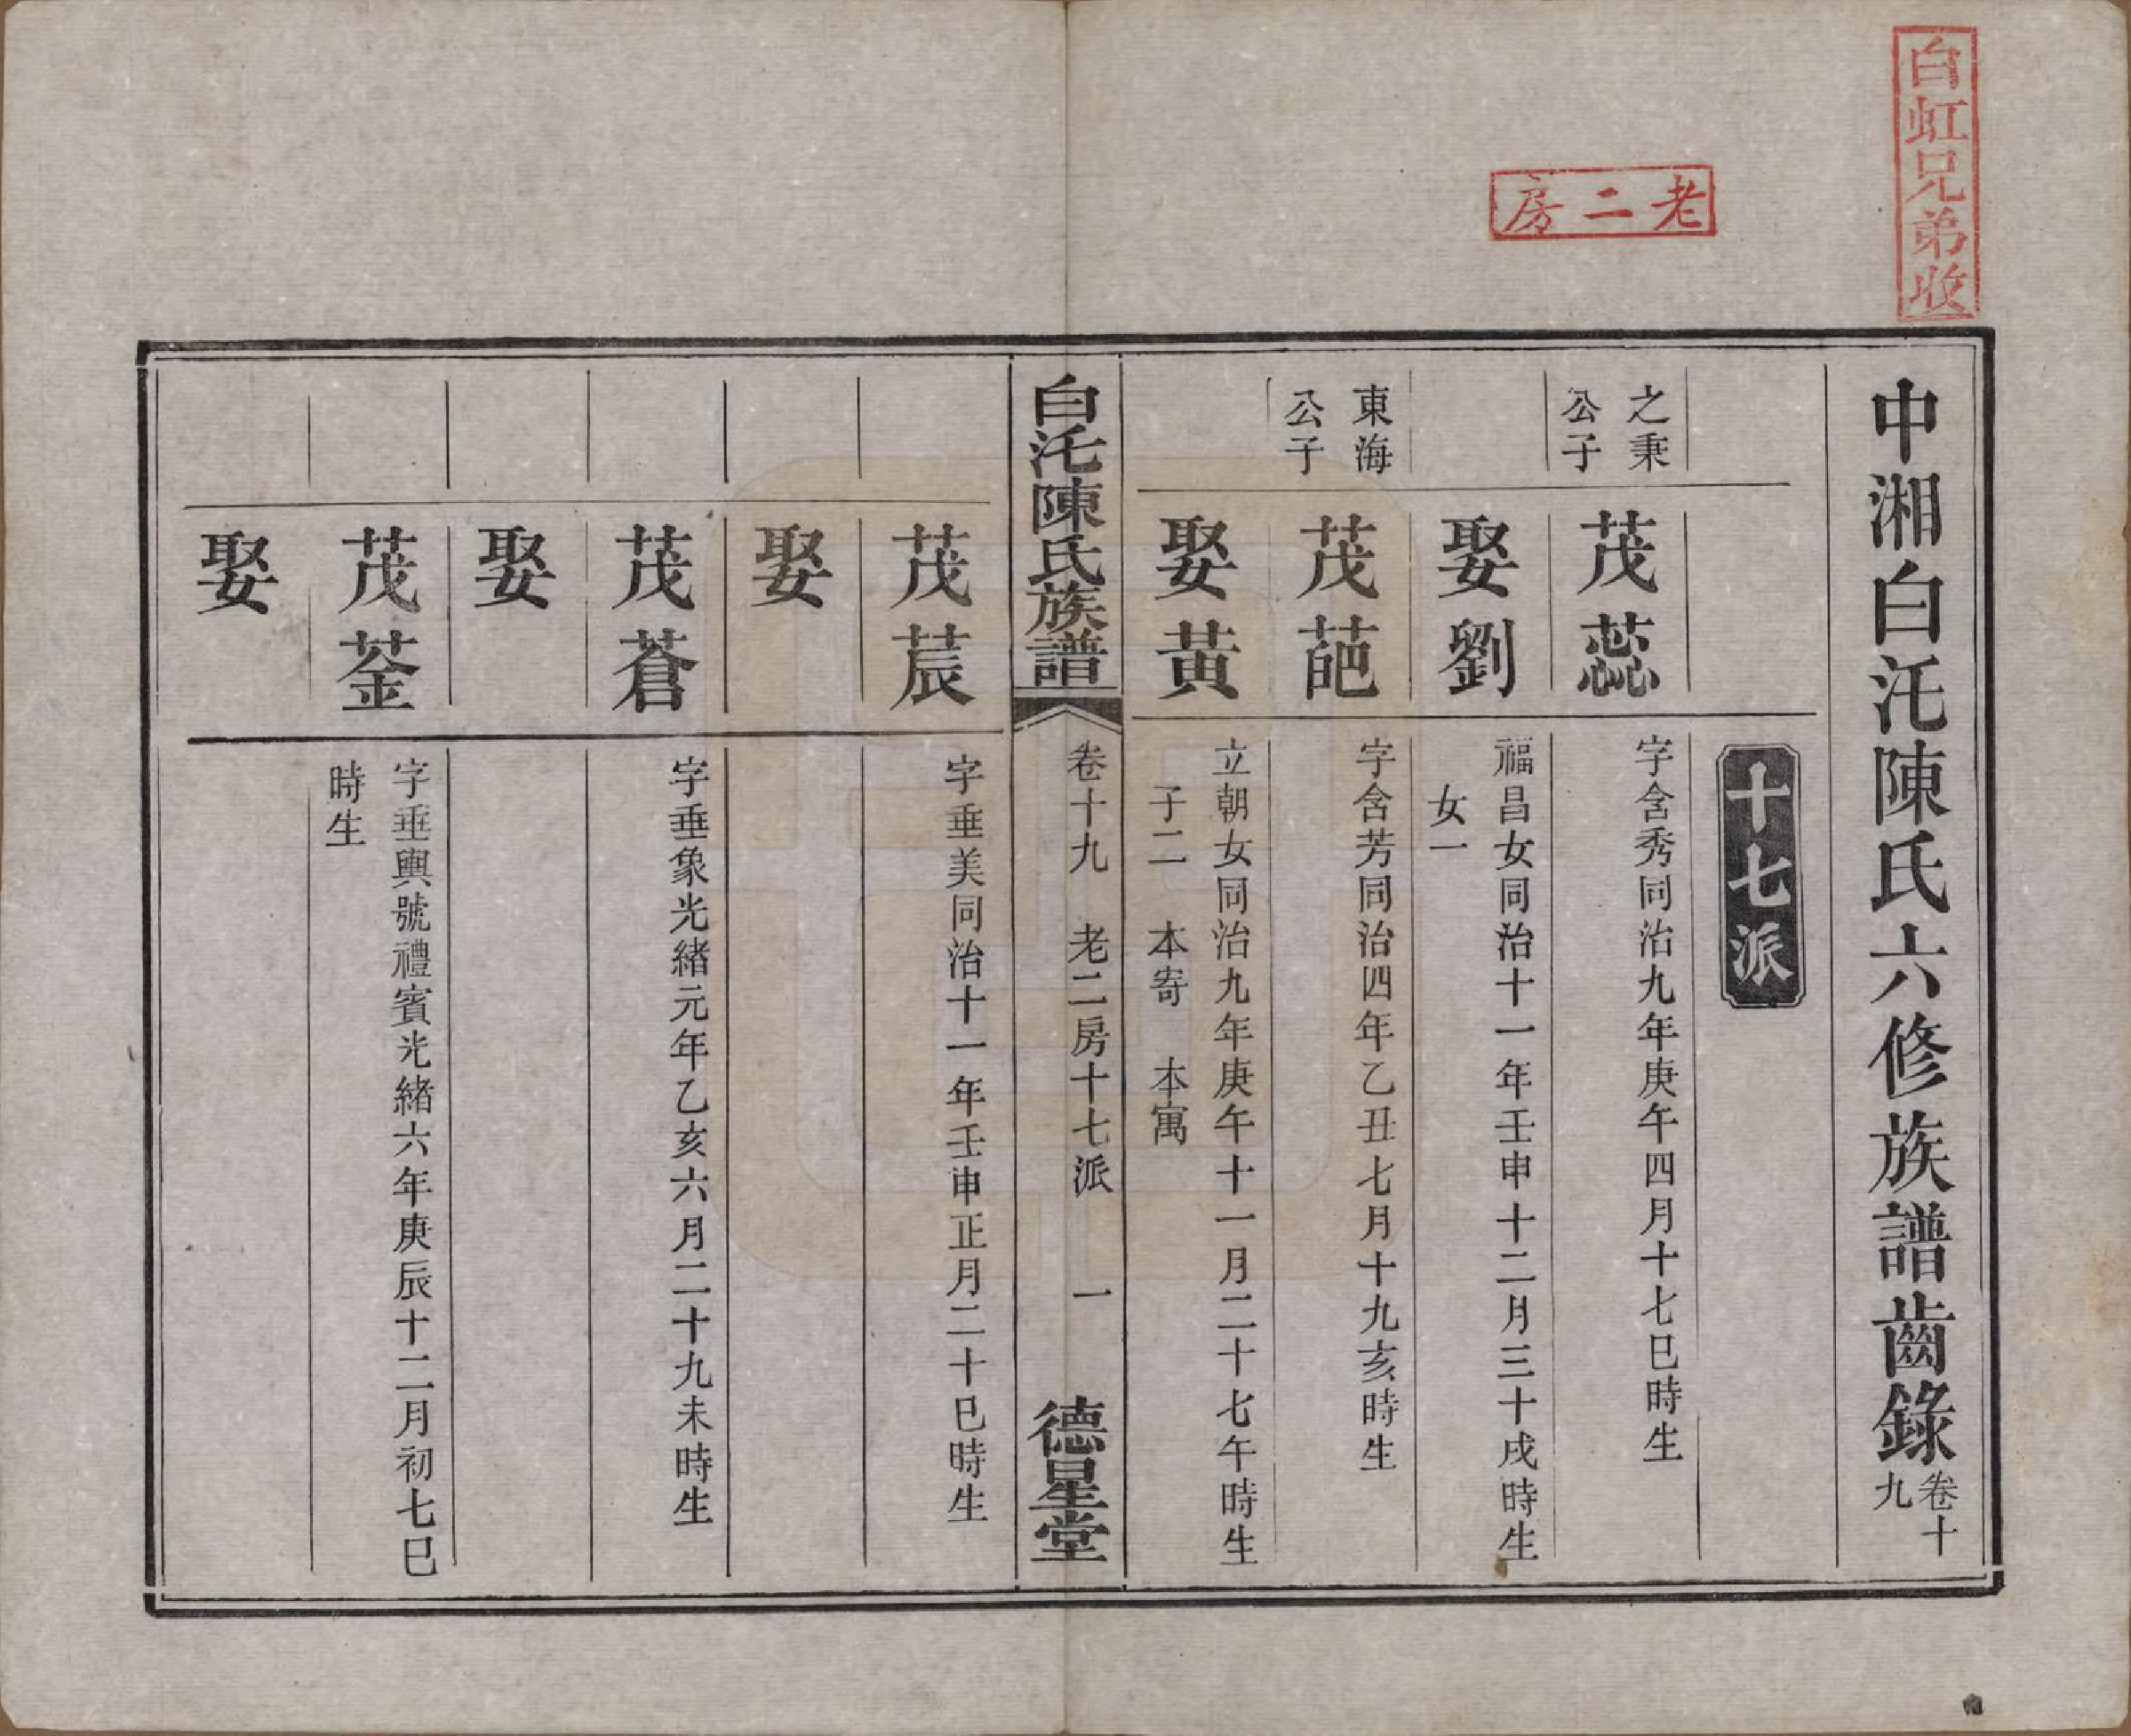 白虹兄弟收
老二房
中湘白沰陳氏六修族譜齒錄 卷十九
十七派
之秉公子
茂蕊
字含秀同治九年庚午四月十七巳時生
娶劉
福昌女同治十一年壬申十二月三十戌時生
女一
東海公子
茂葩
字含芳同治四年乙丑七月十九亥時生
娶黃
立朝女同治九年庚午十一月二十七午時生
子二 本寄 本寓
白沰陳氏族譜
卷十九 老二房十七派 一
德星堂
茂莀
字垂美同治十一年壬申正月二十巳時生
娶
茂蒼
字垂象光緒元年乙亥六月二十九未時生
娶
茂荃
字垂輿號禮賓光緒六年庚辰十二月初七巳
時生
娶